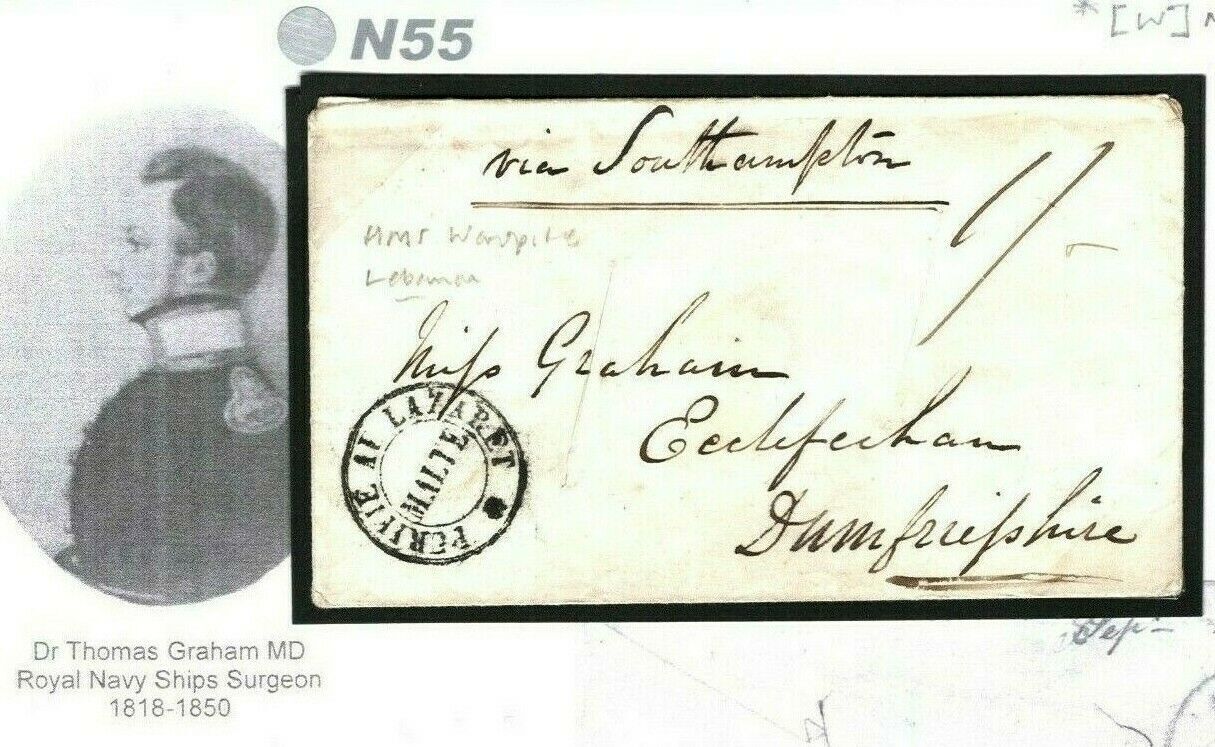 N55
* [W]
via Southampton
1/-
HMS Warspite
Lebanon
Miss Graham
Ecclefechan
Dumfriesshire
PURIFIÉ AU LAZARET
MALTE
Dr Thomas Graham MD
Royal Navy Ships Surgeon
1818-1850